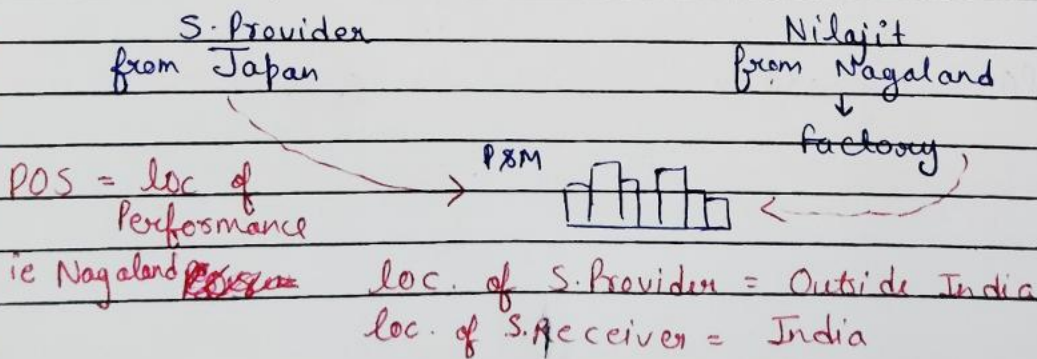 S. Provider
from Japan
Nilajit
from Nagaland
factory
P&M
POS = loc of
Performance
ie Nagaland
loc. of S. Provider = Outside India
loc. of S. Receiver = India